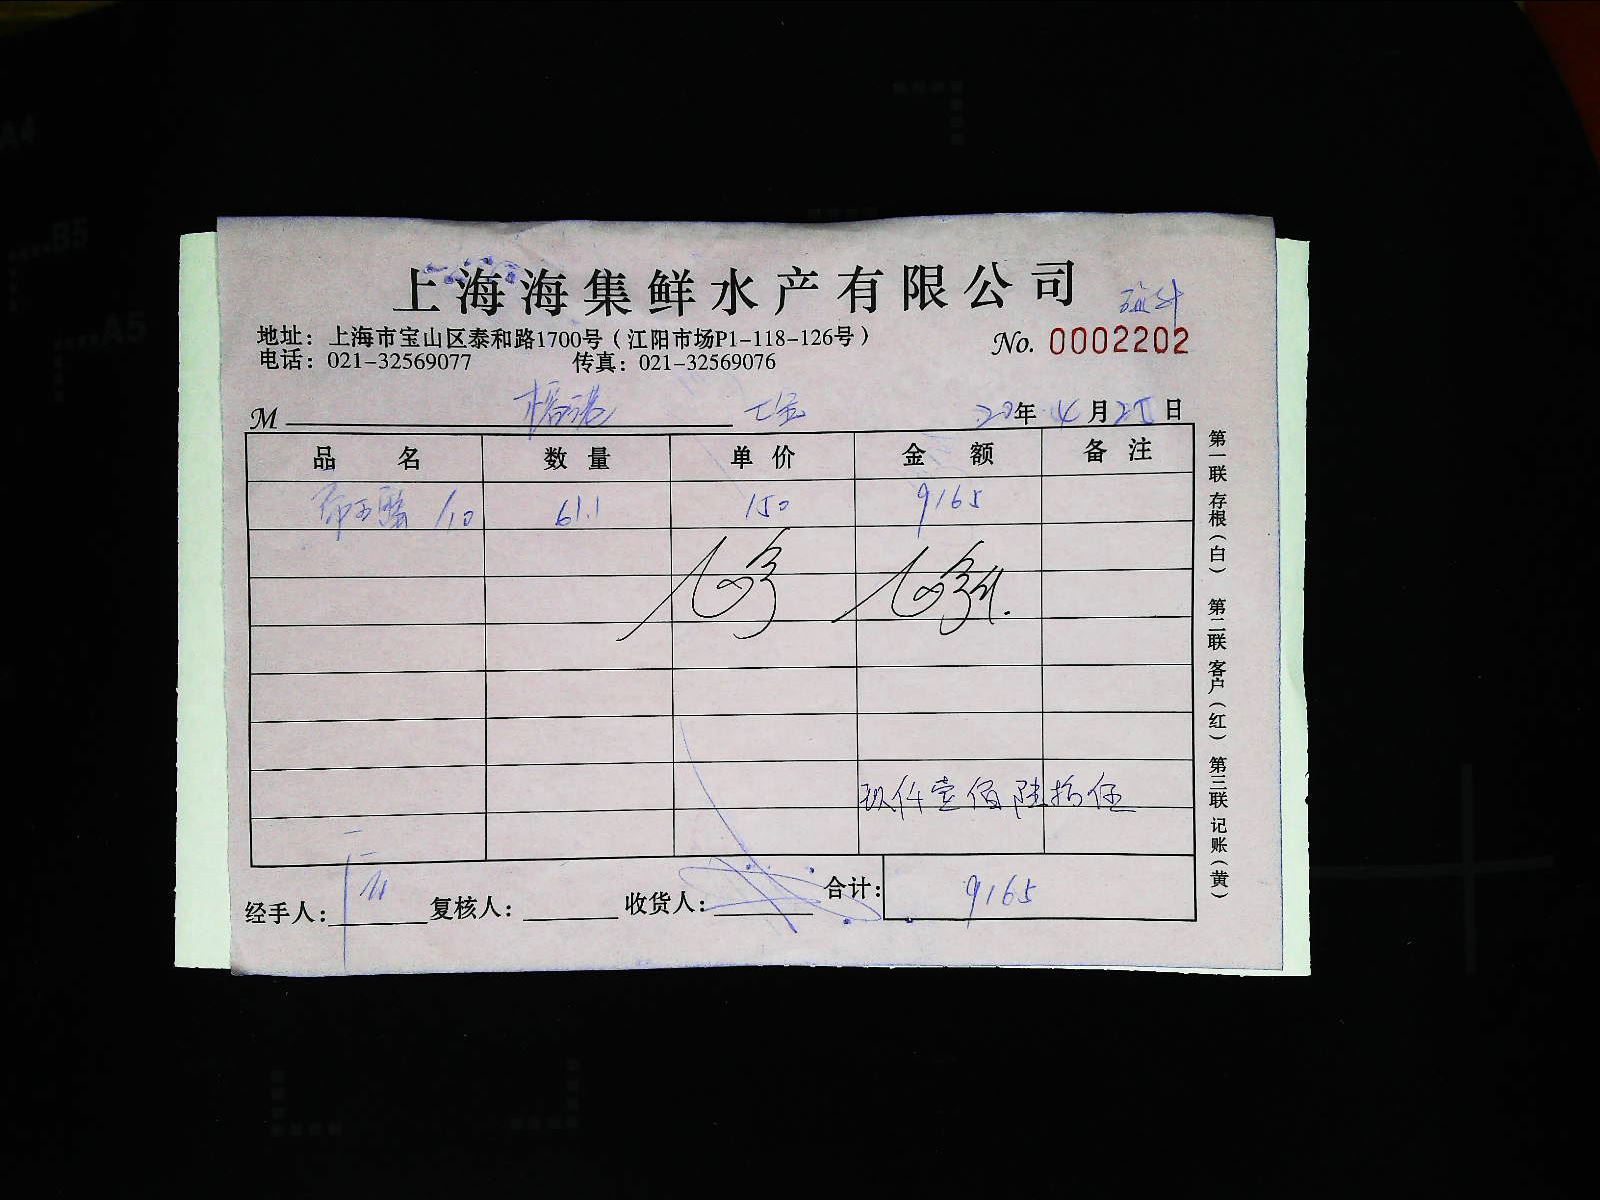 上海海集鲜水产有限公司
地址：上海市宝山区泰和路1700号（江阳市场P1-118-126号）
电话：021-32569077 传真：021-32569076
No. 0002202
M 20年4月 日
品名 数量 单价 金额 备注
/10 61.1 150 9165
玖仟壹佰陆拾伍
经手人： 复核人： 收货人： 合计： 9165
第一联 存根（白） 第二联 客户（红） 第三联 记账（黄）
A4
B5
A5